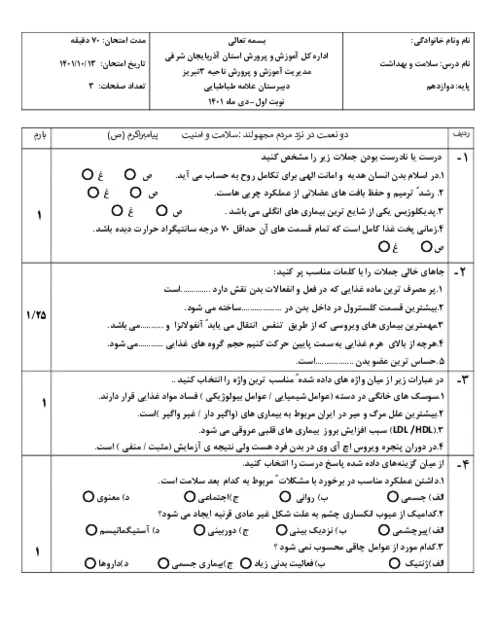 نام ونام خانوادگی:
بسمه تعالی
مدت امتحان: ۷۰ دقیقه
نام درس: سلامت و بهداشت
اداره کل آموزش و پرورش استان آذربایجان شرقی
تاریخ امتحان: ۱۴۰۱/۱۰/۱۳
پایه: دوازدهم
مدیریت آموزش و پرورش ناحیه ۳تبریز
تعداد صفحات: ۳
دبیرستان علامه طباطبایی
نوبت اول-دی ماه ۱۴۰۱
ردیف دو نعمت در نزد مردم مجهولند :سلامت و امنیت پیامبراکرم (ص) بارم
۱- درست یا نادرست بودن جملات زیر را مشخص کنید
۱.در اسلام بدن انسان هدیه و امانت الهی برای تکامل روح به حساب می آید. ص غ
۲. رشد ً ترمیم و حفظ بافت های عضلانی از عملکرد چربی هاست. ص غ
۳.پدیکلوزیس یکی از شایع ترین بیماری های انگلی می باشد . ص غ
۱
۴.زمانی پخت غذا کامل است که تمام قسمت های آن حداقل ۷۰ درجه سانتیگراد حرارت دیده باشد.
ص غ
۲- جاهای خالی جملات را با کلمات مناسب پر کنید:
۱.پر مصرف ترین ماده غذایی که در فعل و انفعالات بدن نقش دارد .............است
۲.بیشترین قسمت کلسترول در داخل بدن در ..................ساخته می شود.
۱/۲۵
۳.مهمترین بیماری های ویروسی که از طریق تنفس انتقال می یابد ً آنفولانزا و ..........می باشد.
۴.هرچه از بالای هرم غذایی به سمت پایین حرکت کنیم حجم گروه های غذایی ...........می شود.
۵.حساس ترین عضو بدن .................است.
۳- در عبارات زیر از میان واژه های داده شده ً مناسب ترین واژه را انتخاب کنید ..
۱.سوسک های خانگی در دسته (عوامل شیمیایی / عوامل بیولوژیکی ) فساد مواد غذایی قرار دارند.
۲.بیشترین علل مرگ و میر در ایران مربوط به بیماری های (واگیر دار / غیر واگیر )است.
۳.(LDL /HDL) سبب افزایش بروز بیماری های قلبی عروقی می شود.
۱
۴.در دوران پنجره ویروس اچ آی وی در بدن فرد هست ولی نتیجه ی آزمایش (مثبت / منفی ) است.
۴- از میان گزینه‌های داده شده پاسخ درست را انتخاب کنید.
۱.داشتن عملکرد مناسب در برخورد با مشکلات ً مربوط به کدام بعد سلامت است.
الف) جسمی ب) روانی ج)اجتماعی د) معنوی
۲.کدامیک از عیوب انکساری چشم به علت شکل غیر عادی قرنیه ایجاد می شود؟
الف)پیرچشمی ب) نزدیک بینی ج) دوربینی د) آستیگماتیسم
۱
۳.کدام مورد از عوامل چاقی محسوب نمی شود ؟
الف)ژنتیک ب)فعالیت بدنی زیاد ج)بیماری جسمی د)داروها